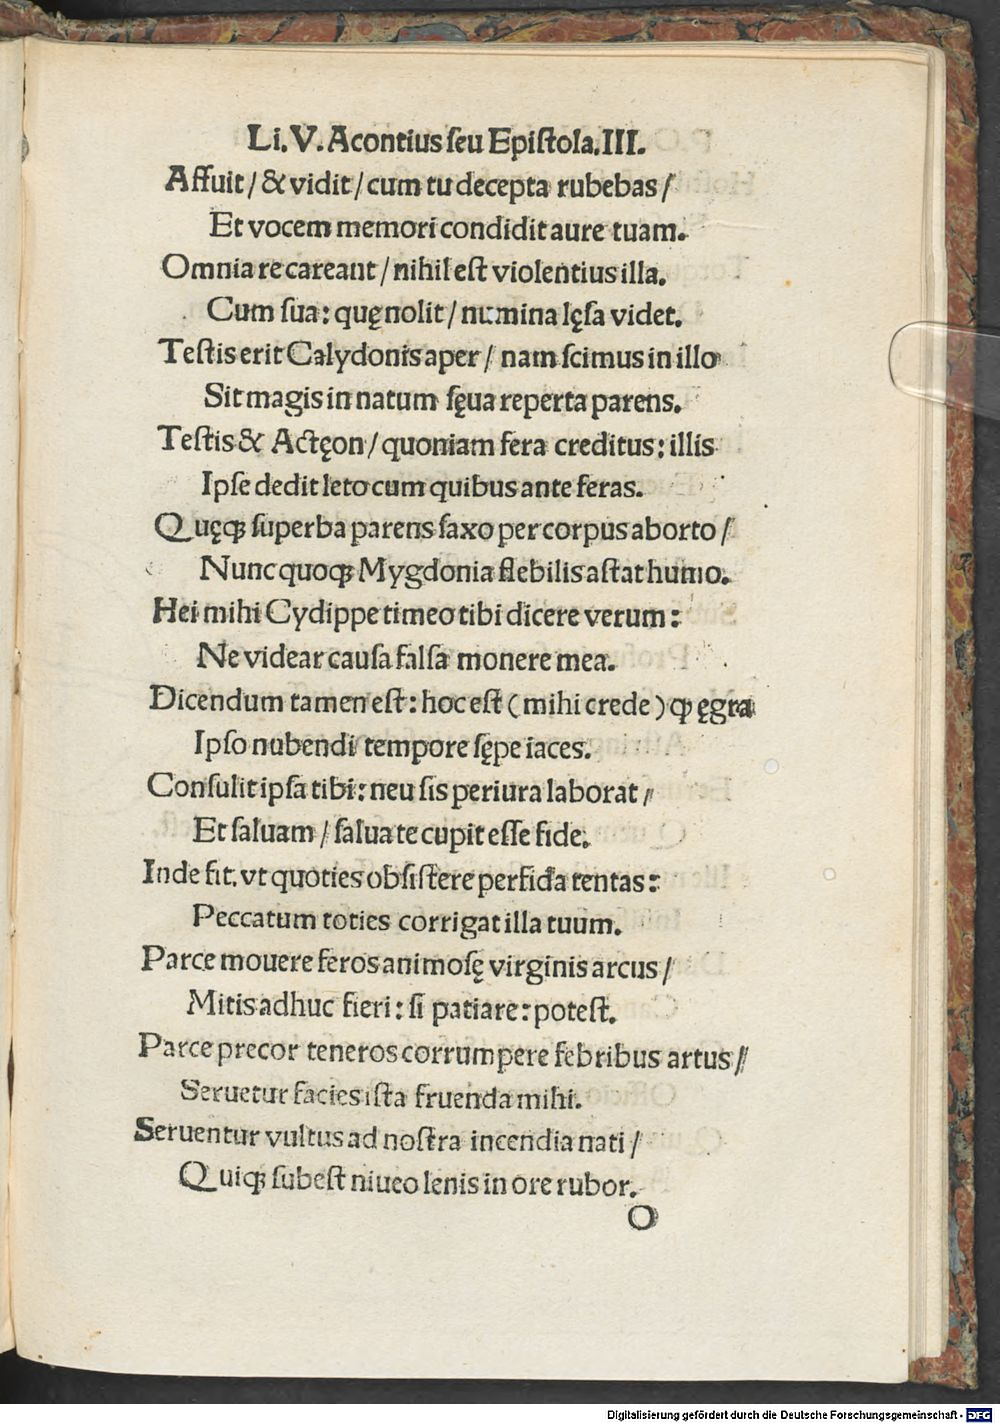 Li. V. Acontius ſeu Epiſtola. III.
Affuit / & vidit / cum tu decepta rubebas /
Et vocem memori condidit aure tuam.
Omnia re careant / nihil eſt violentius illa.
Cum ſua: quę nolit / numina lęſa videt.
Teſtis erit Calydonis aper / nam ſcimus in illo
Sit magis in natum ſęua reperta parens.
Teſtis & Actęon / quoniam fera creditus: illis
Ipſe dedit leto cum quibus ante feras.
Quęqꝫ ſuperba parens ſaxo per corpus aborto /
Nunc quoqꝫ Mygdonia flebilis aſtat humo.
Hei mihi Cydippe timeo tibi dicere verum:
Ne videar cauſa falſa monere mea.
Dicendum tamen eſt: hoc eſt (mihi crede) ꝙ ęgra
Ipſo nubendi tempore ſępe iaces.
Conſulit ipſa tibi: neu ſis periura laborat /
Et ſaluam / ſalua te cupit eſſe fide.
Inde fit. vt quoties obſiſtere perfida tentas:
Peccatum toties corrigat illa tuum.
Parce mouere feros animoſę virginis arcus /
Mitis adhuc fieri: ſi patiare: poteſt.
Parce precor teneros corrumpere febribus artus /
Seruetur facies iſta fruenda mihi.
Seruentur vultus ad noſtra incendia nati /
Quiqꝫ ſubeſt niueo lenis in ore rubor.
O
Digitalisierung gefördert durch die Deutsche Forschungsgemeinschaft - DFG